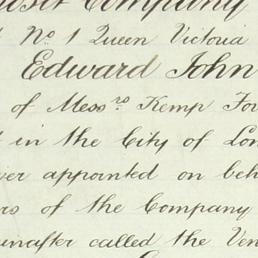 Company
No. 1 Queen Victoria
Edward John
of Mess.rs Kemp
in the City of
appointed on
of the Company
called the